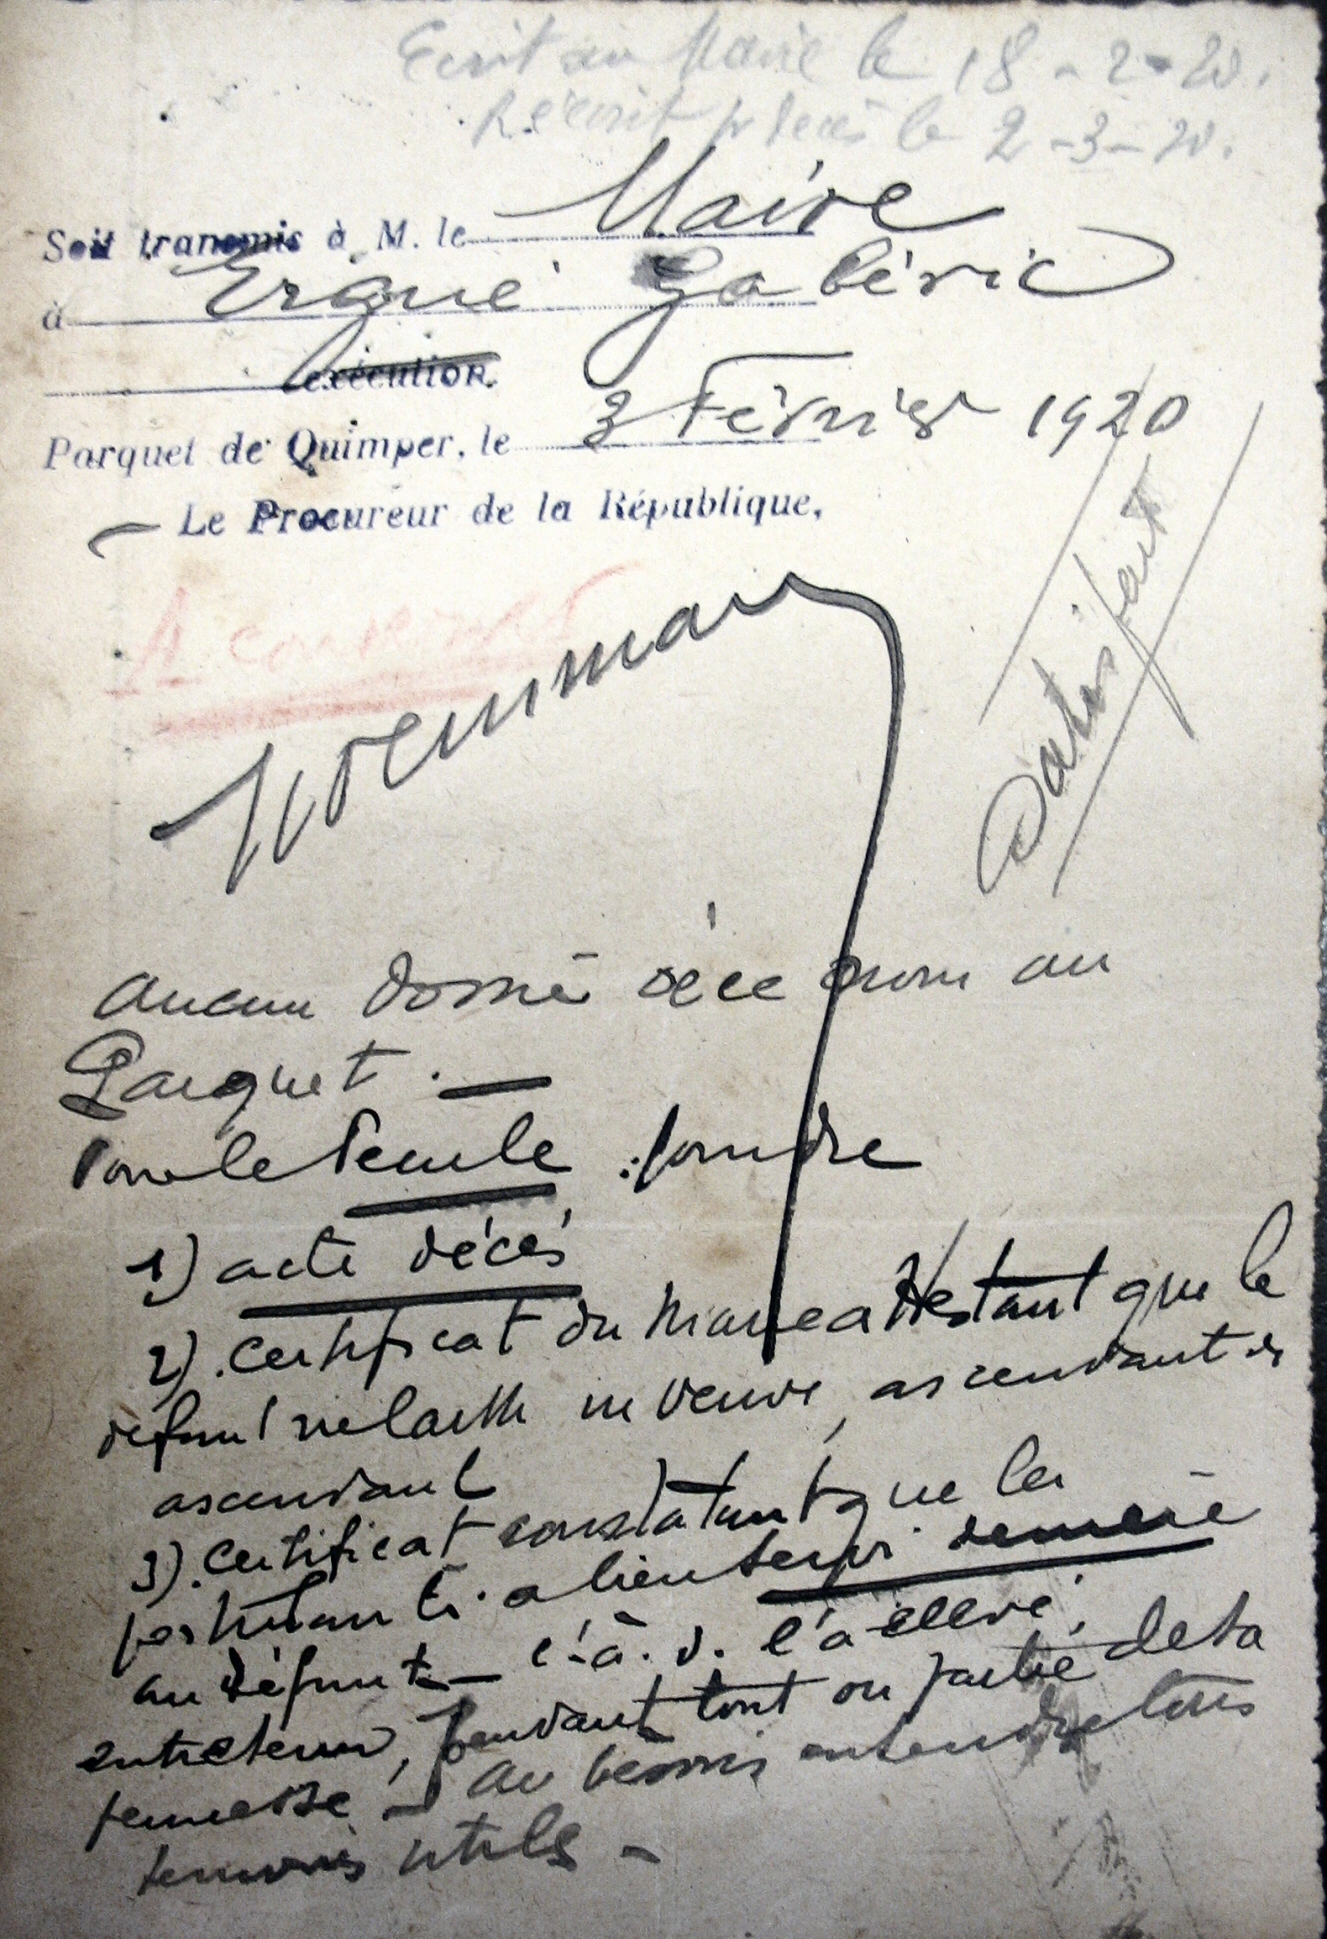 Ecrit au Maire le 18-2-20.
Récrit pr decès le 2-3-20.
Soit transmis à M. le Maire
à Ergué Gabéric
exécution.
Parquet de Quimper, le 3 Février 1920
Le Procureur de la République,
A conserver
Satisfait
aucun dossier à ce nom au
Parquet.
Pour le Pecule : joindre
1) acte décès
2). Certificat du Maire attestant que le
défunt ne laisse ni veuve, ascendant ni
ascendant
3). Certificat constatant que les
postulants a bien servi de mère
au défunt – c.à.d. l'a élevé,
entretenu, pendant tout ou partie de sa
jeunesse – au besoin entendre tous
temoins utiles –